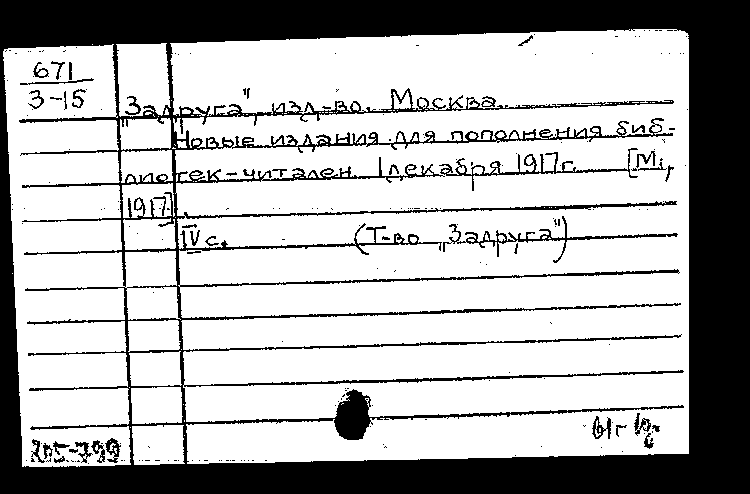 671
3-15
„Задруга", изд-во. Москва.
Новые издания для пополнения биб-
лиотек-читален. 1 декабря 1917 г. [М.,
1917].
IV с. (Т-во „Задруга")
61г